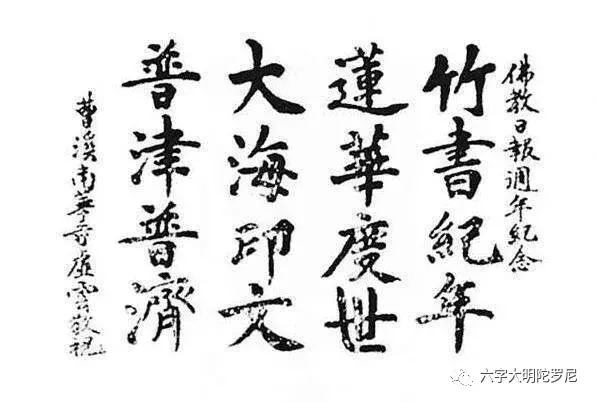 佛教日報週年紀念
竹書紀年
蓮華度世
大海印文
普津普濟
曹溪南華寺虛雲敬祝
六字大明陀罗尼